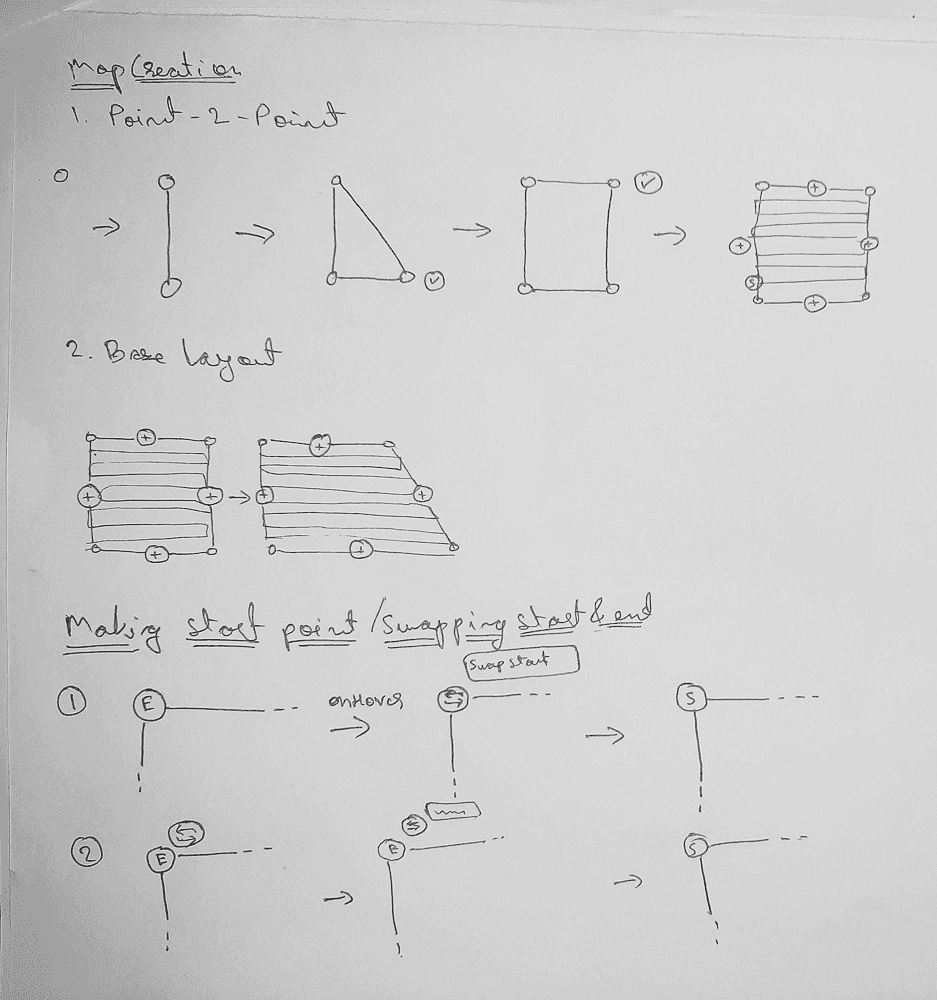 Map Creation
1. Point-2-Point
S
2. Base layout
Making start point/Swapping start & end
Swap start
1 E onHover S
2 E E S